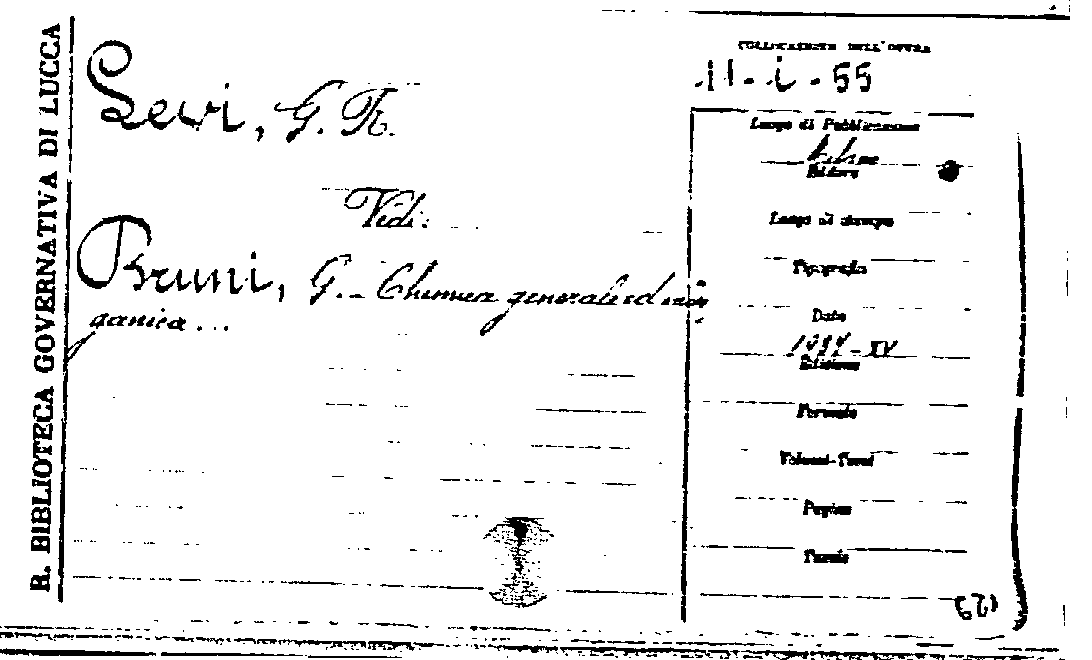 R. BIBLIOTECA GOVERNATIVA DI LUCCA
COLLOCAZIONE DELL'OPERA
11-i-55
Levi, G. R.
Vedi:
Bruni, G. - Chimica generale ed inor
ganica...
Luogo di Pubblicazione
Milano
Editore
Luogo di stampa
Tipografia
Data
Edizione
Formato
Volumi-Tomi
Pagine
Tavole